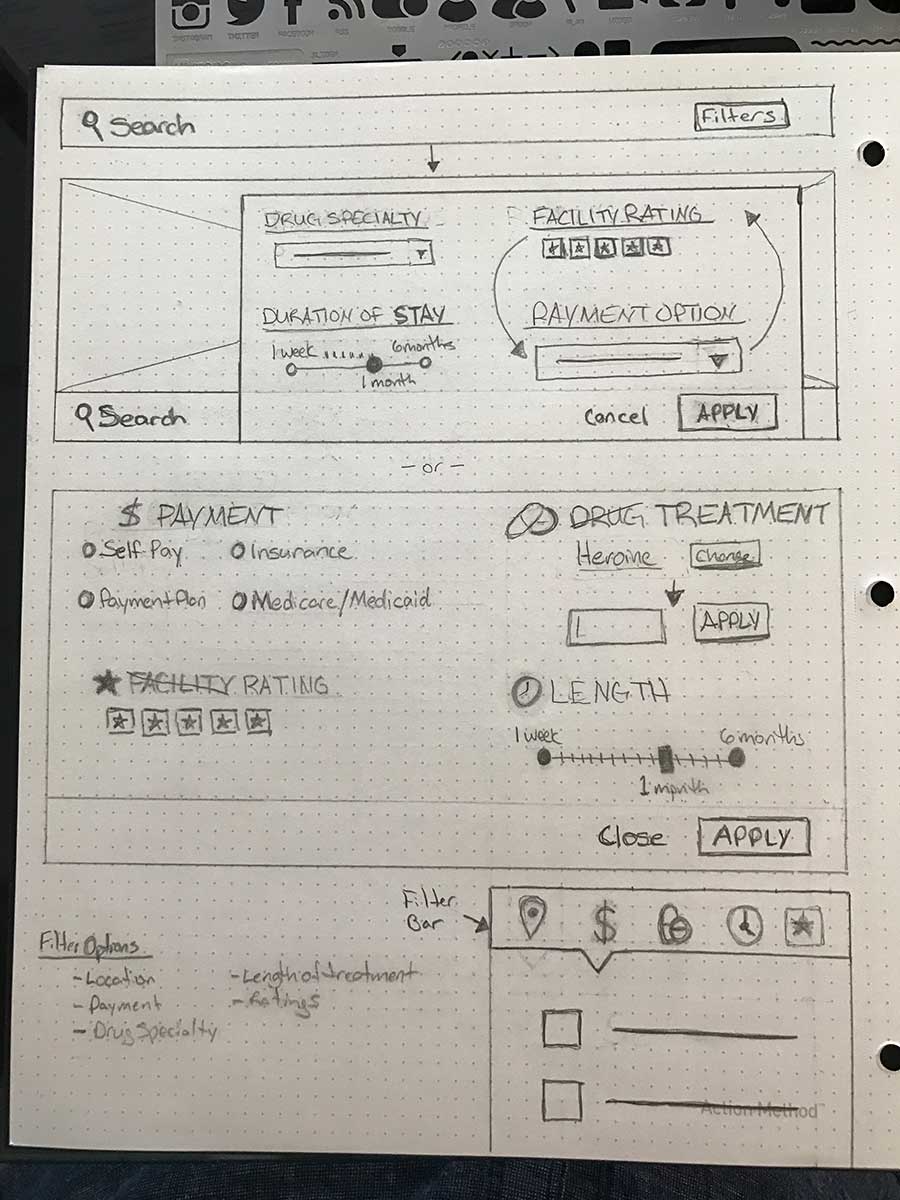 INSTAGRAM TWITTER FACEBOOK RSS TOGGLE PROFILE
Search Filters
DRUG SPECIALTY FACILITY RATING
DURATION OF STAY PAYMENT OPTION
1 week 6 months
1 month
Search Cancel APPLY
- or -
$ PAYMENT DRUG TREATMENT
Self Pay Insurance Heroine Change
Payment Plan Medicare/Medicaid APPLY
FACILITY RATING LENGTH
1 week 6 months
1 month
Close APPLY
Filter
Bar
$
Filter Options
- Location - Length of treatment
- Payment - Ratings
- Drug Specialty
Action Method